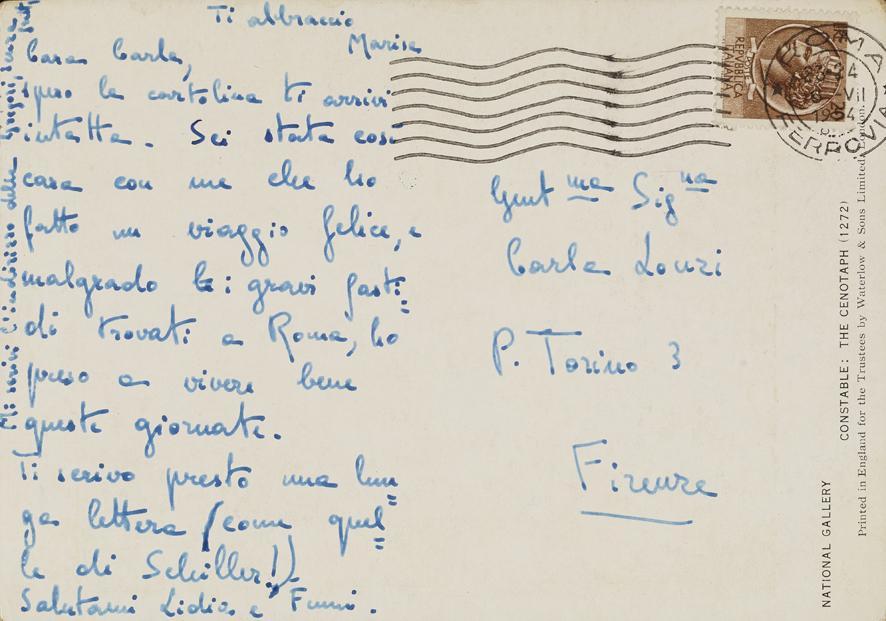 Cara Carla,
spero la cartolina ti arrivi
intatta. Sei stata così
cara con me che ho
fatto un viaggio felice, e
malgrado i gravi fasti=
di trovati a Roma, ho
preso a vivere bene
queste giornate.
Ti scrivo presto una lun=
ga lettera (come quel=
le di Schiller!)
Salutami Lidia e Fummi.
Ti abbraccio
Marisa
Mi scrivi l'indirizzo della Gregori, senza
Gent.ma Sig.na
Carla Lonzi
P. Torino 3
Firenze
REPVBBLICA
ITALIANA
ROMA
VII
1954
FERROVIA
NATIONAL GALLERY
CONSTABLE: THE CENOTAPH (1272)
Printed in England for the Trustees by Waterlow & Sons Limited, London.